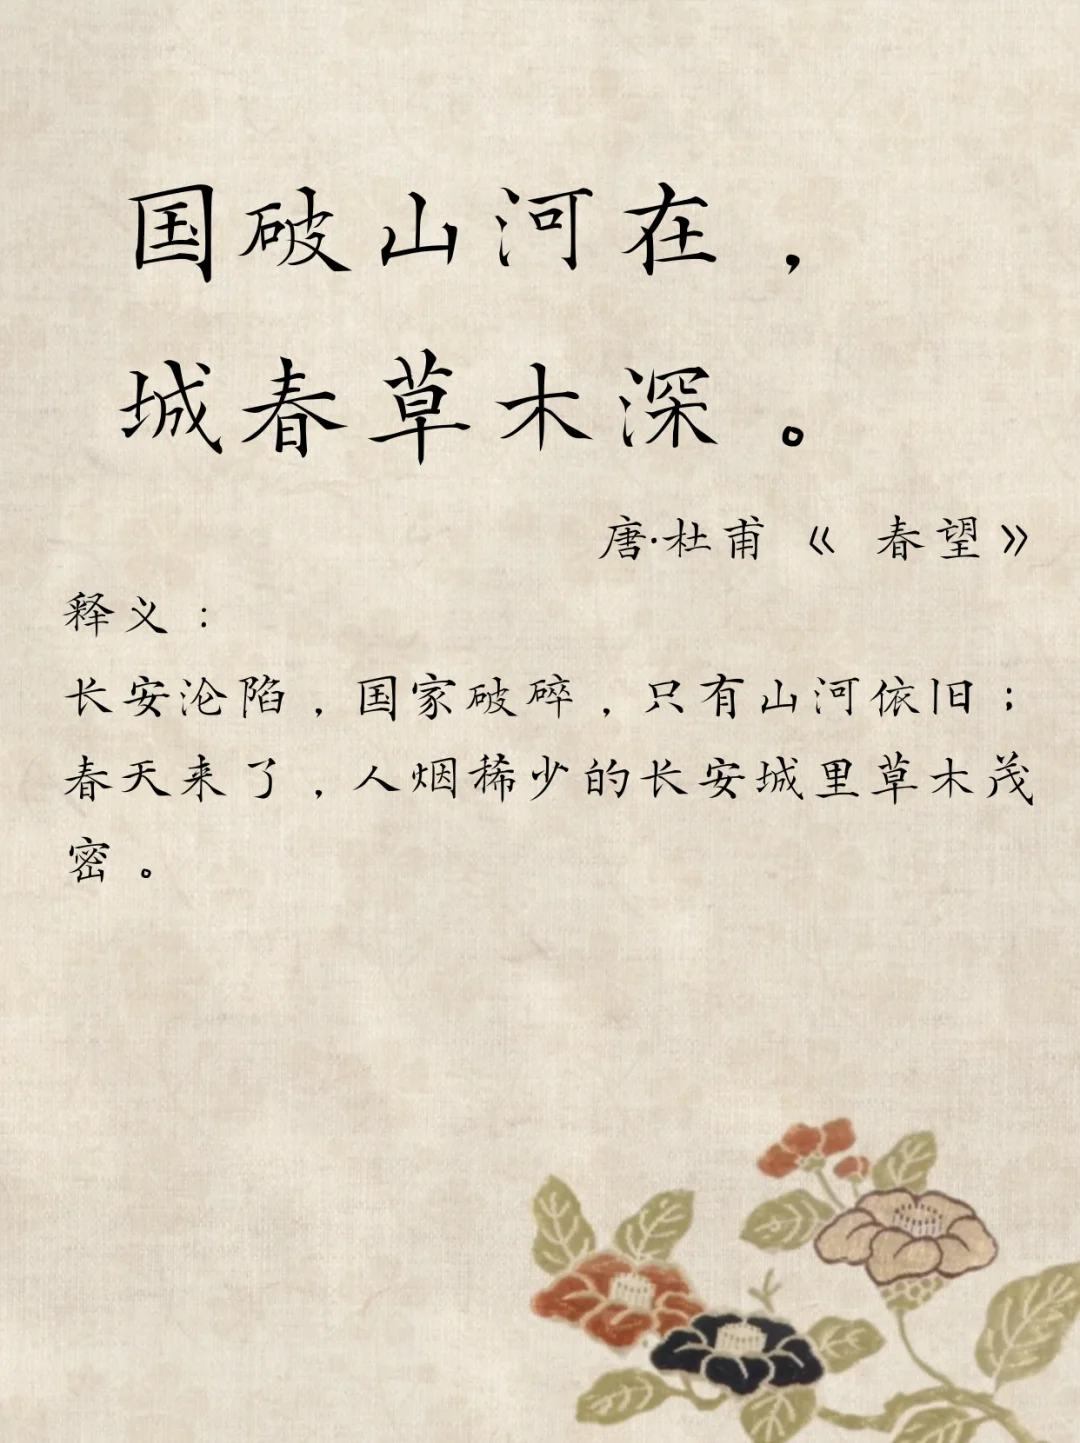 国破山河在，
城春草木深。
唐·杜甫《春望》
释义：
长安沦陷，国家破碎，只有山河依旧；
春天来了，人烟稀少的长安城里草木茂
密。